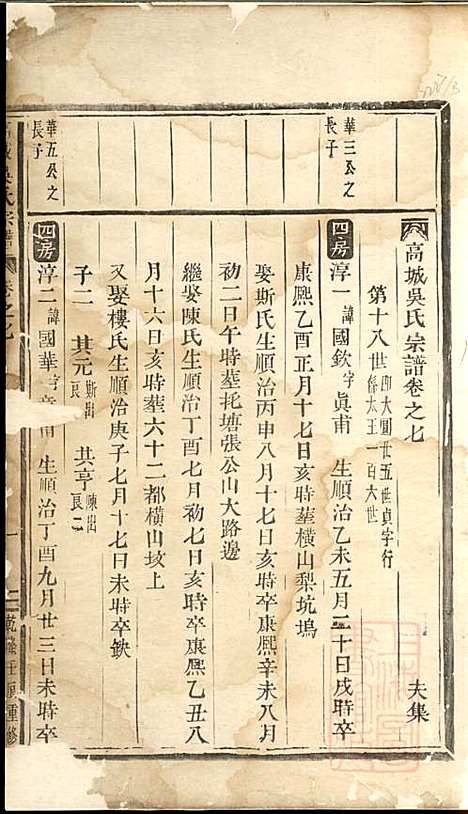 高城吳氏宗譜卷之七 夫集
第十八世 即大園廿五世貞字行
係太王一百六世
華三公之
長子
四房 淳一 諱國欽字眞甫 生順治乙未五月二十日戌時卒
康熙乙酉正月十七日亥時塟橫山梨坑塢
娶斯氏生順治丙申八月十七日亥時卒康熙辛未八月
初二日午時塟圫塘張公山大路邊
繼娶陳氏生順治丁酉七月初七日亥時卒康熙乙丑八
月十六日亥時塟六十二都橫山坟上
又娶樓氏生順治庚子七月十七日未時卒缺
子二 其元 斯出 長 共亨 陳出 長二
華五公之
長子
四房 淳二 諱國華字 甫 生順治丁酉九月廿三日未時卒
城吳氏宗譜 卷之七 一 乾隆壬 重修